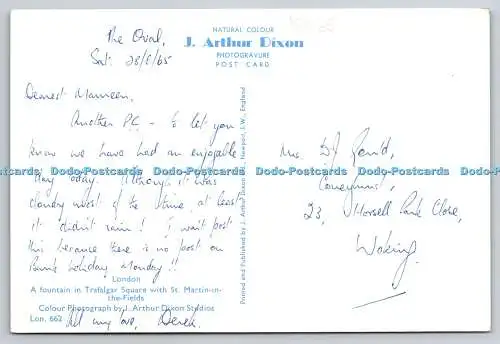 NATURAL COLOUR
J. Arthur Dixon
PHOTOGRAVURE
POST CARD
The Oval,
Sat. 28/8/65
Dearest Maureen,
Another P.C. - to let you
know we have had an enjoyable
day today. Although it was
cloudy most of the time, at least
it didn't rain! I won't post
this because there is no post on
Bank Holiday Monday!!
All my love, Derek.
Mrs. D J
23, Horsell Park Close,
Woking.
London
A fountain in Trafalgar Square with St. Martin-in-
the-Fields
Colour Photograph by J. Arthur Dixon Studios
Lon. 662
Printed and Published by J. Arthur Dixon Newport, I.W., England
Dodo-Postcards Dodo-Postcards Dodo-Postcards Dodo-Postcards Dodo-Postcards